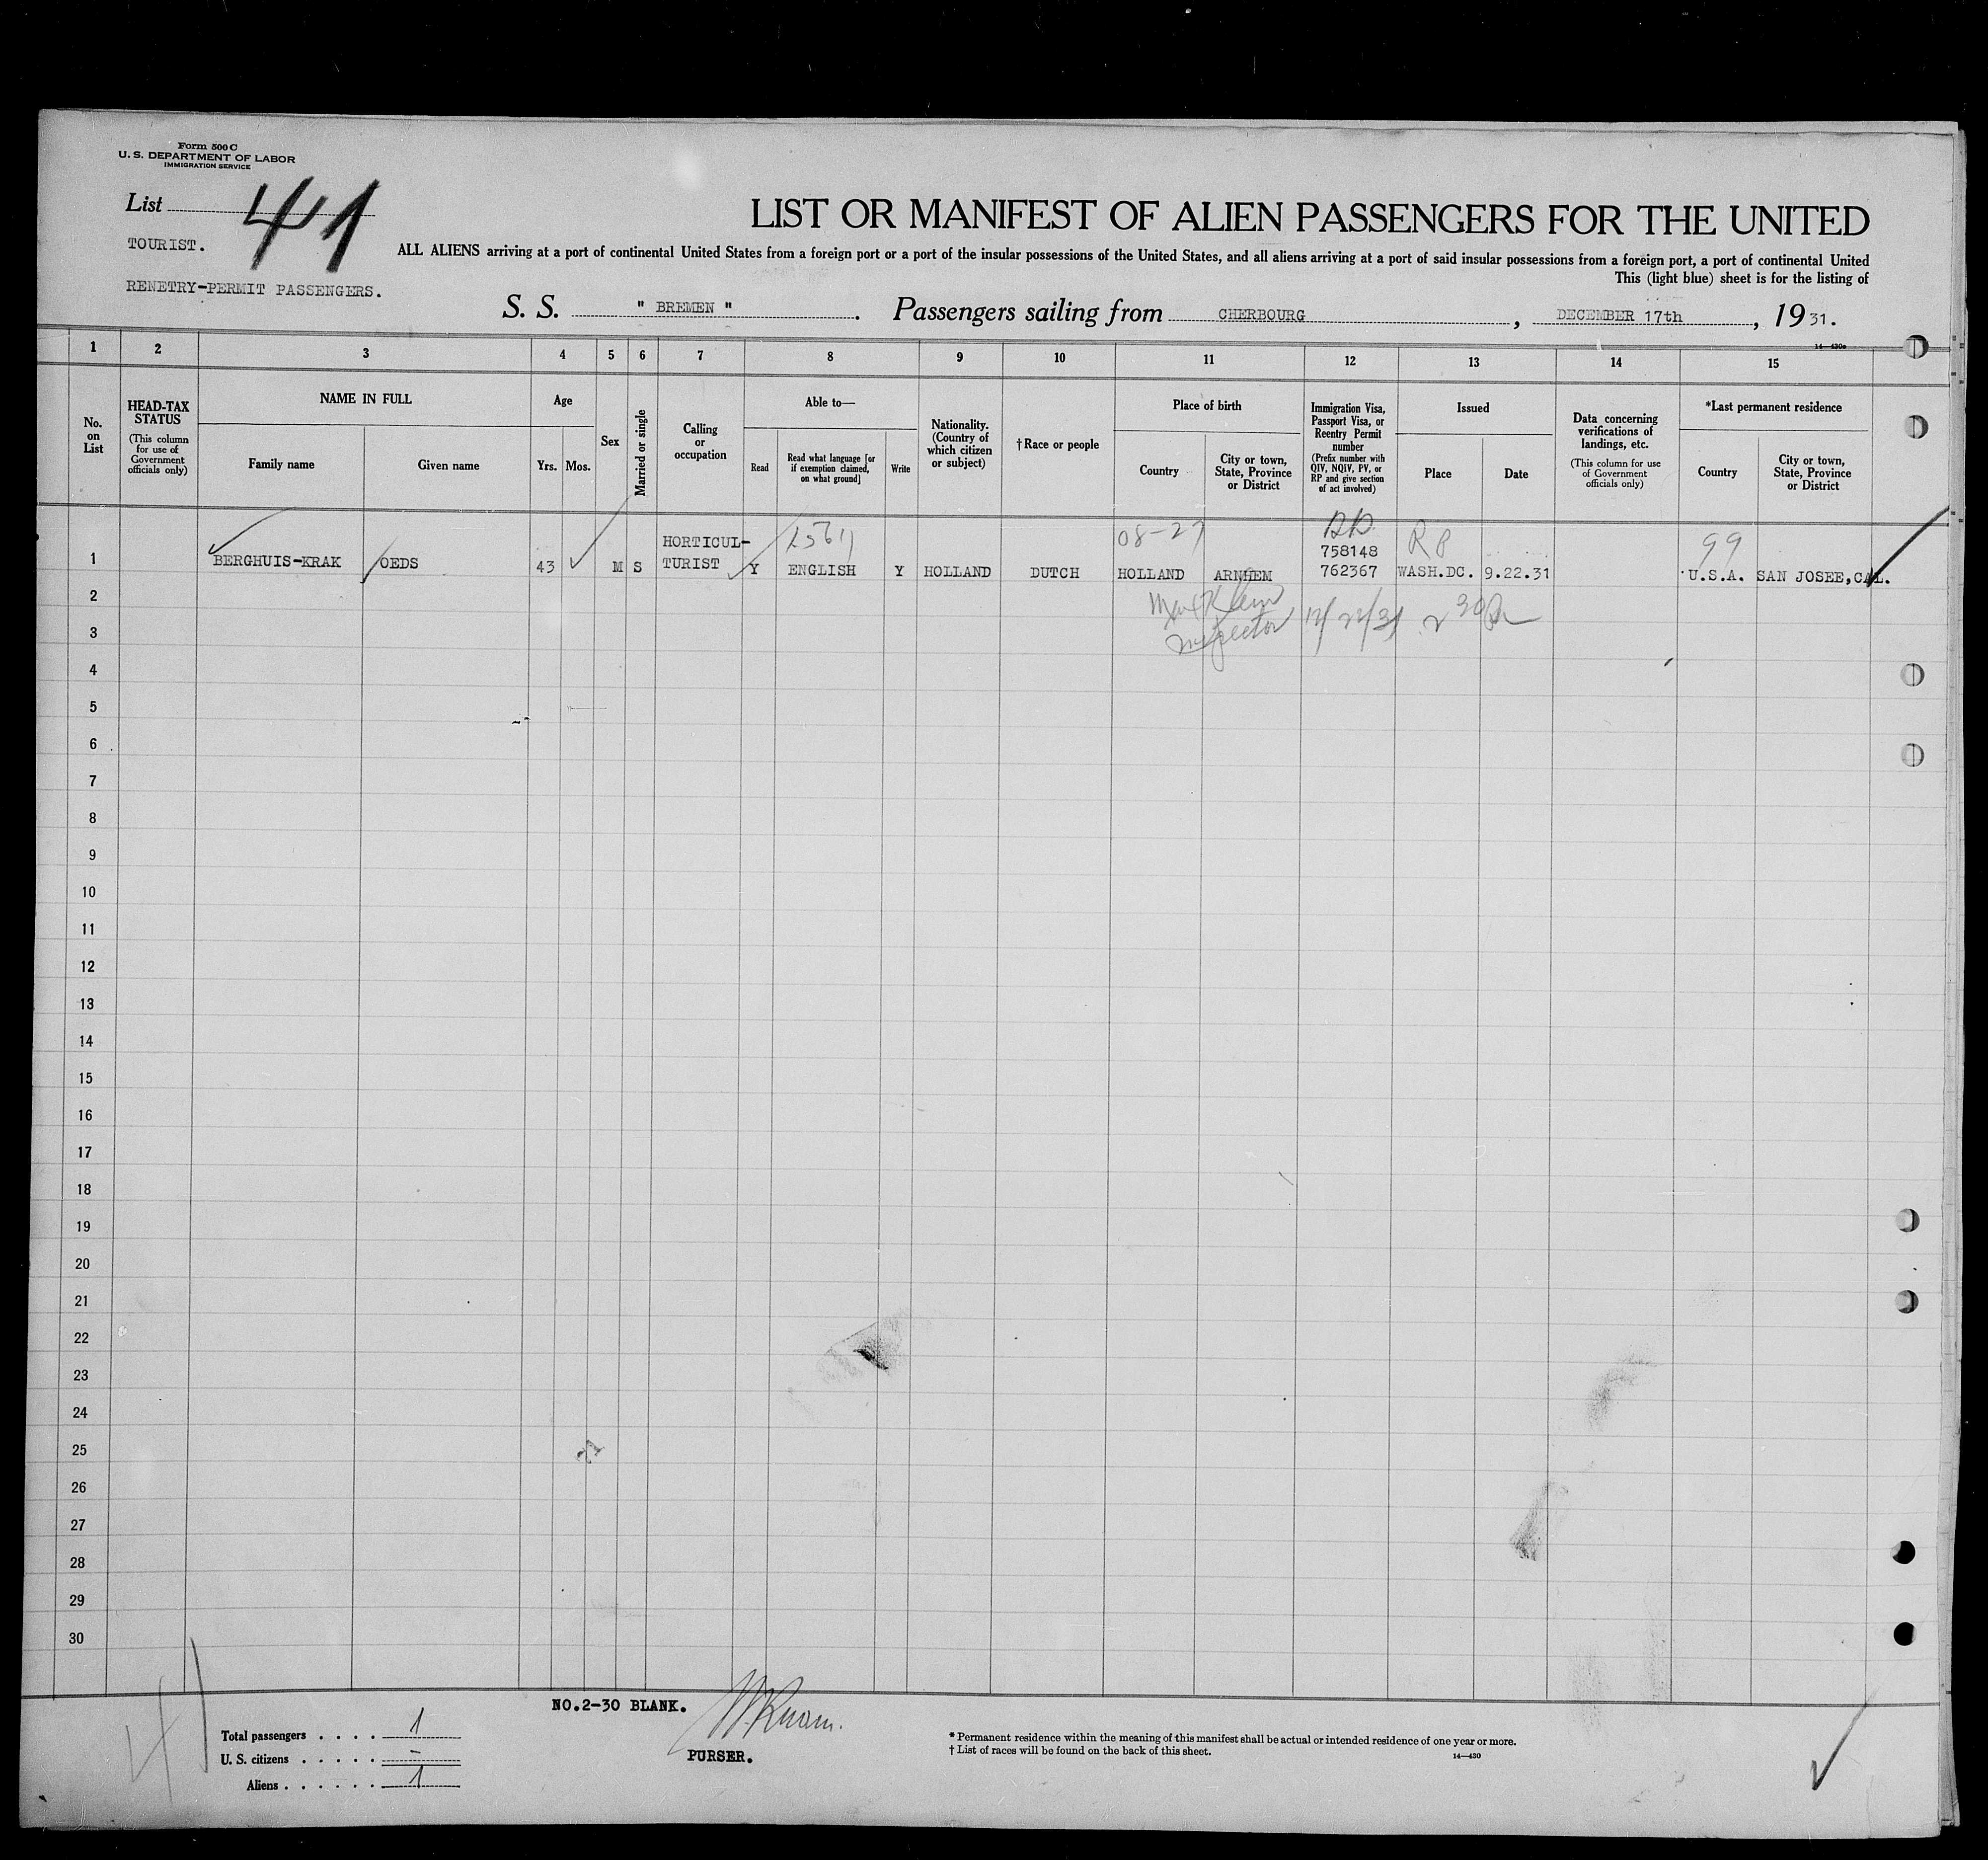 Form 500 C
U. S. DEPARTMENT OF LABOR
IMMIGRATION SERVICE
List 41
TOURIST.
RENETRY-PERMIT PASSENGERS.
LIST OR MANIFEST OF ALIEN PASSENGERS FOR THE UNITED
ALL ALIENS arriving at a port of continental United States from a foreign port or a port of the insular possessions of the United States, and all aliens arriving at a port of said insular possessions from a foreign port, a port of continental United
This (light blue) sheet is for the listing of
S. S. " BREMEN ". Passengers sailing from CHERBOURG, DECEMBER 17th, 19 31.
14—430c
1 2 3 4 5 6 7 8 9 10 11 12 13 14 15
No. on List
HEAD-TAX STATUS
(This column for use of Government officials only)
NAME IN FULL
Family name
Given name
Age
Yrs.
Mos.
Sex
Married or single
Calling or occupation
Able to—
Read
Read what language [or if exemption claimed, on what ground]
Write
Nationality. (Country of which citizen or subject)
† Race or people
Place of birth
Country
City or town, State, Province or District
Immigration Visa, Passport Visa, or Reentry Permit number
(Prefix number with QIV, NQIV, PV, or RP and give section of act involved)
Issued
Place
Date
Data concerning verifications of landings, etc.
(This column for use of Government officials only)
*Last permanent residence
Country
City or town, State, Province or District
08-27 RP 99
1 BERGHUIS-KRAK OEDS 43 M S HORTICUL-TURIST Y ENGLISH Y HOLLAND DUTCH HOLLAND ARNHEM 758148 762367 WASH.DC. 9.22.31 U.S.A. SAN JOSEE,CAL.
Inspector 12/22/31
2
3
4
5
6
7
8
9
10
11
12
13
14
15
16
17
18
19
20
21
22
23
24
25
26
27
28
29
30
NO.2-30 BLANK.
PURSER.
Total passengers . . . . 1
U. S. citizens . . . . . -
Aliens . . . . . . 1
41
* Permanent residence within the meaning of this manifest shall be actual or intended residence of one year or more.
† List of races will be found on the back of this sheet.
14—430